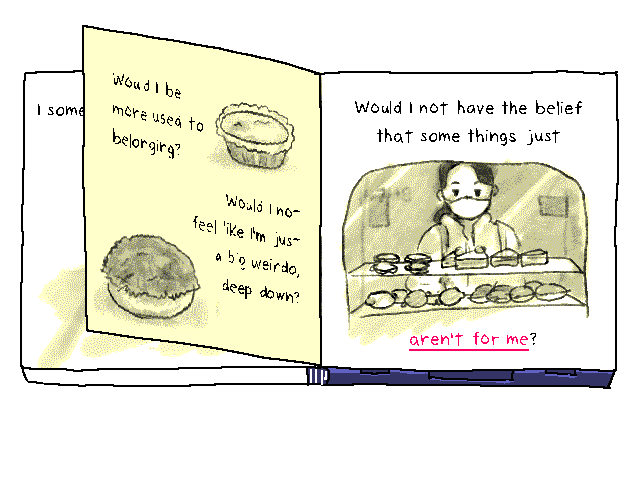 I some
Woud I be
more used to
belonging?
Would I no
feel like I'm jus
a big weirdo,
deep down?
Would I not have the belief
that some things just
aren't for me?